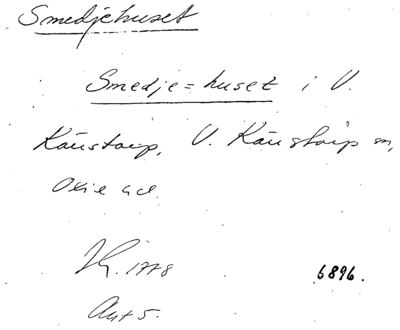 Smedjehuset
Smedje=huset i V.
Kärrstorp, V. Kärrstorp sn,
Oxie hd.
1778
6896.
Akt 5.